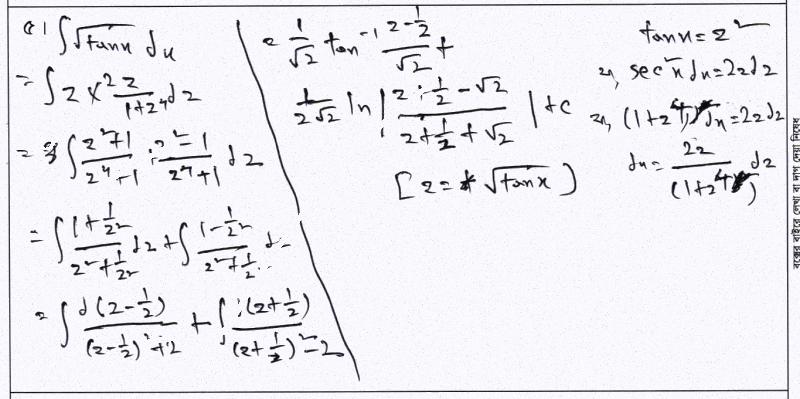 ∫√tanx dx
= ∫ z × 2z/(1+z⁴) dz
= ∫ (z²+1)/(z⁴+1) + (z²-1)/(z⁴+1) dz
= ∫ (1+1/z²)/(z²+1/z²) dz + ∫ (1-1/z²)/(z²+1/z²) d
= ∫ d(z-1/z)/((z-1/z)²+2) + ∫ (z+1/z)/((z+1/z)²-2)
= 1/√2 tan⁻¹ (z-1/z)/√2 +
1/2√2 ln | (z+1/z-√2)/(z+1/z+√2) | +c
[z = √tanx]
tanx = z²
বা, sec²x dx = 2z dz
বা, (1+z⁴) dx = 2z dz
dx = 2z/(1+z⁴) dz
বক্সের বাইরে লেখা বা দাগ দেয়া নিষেধ